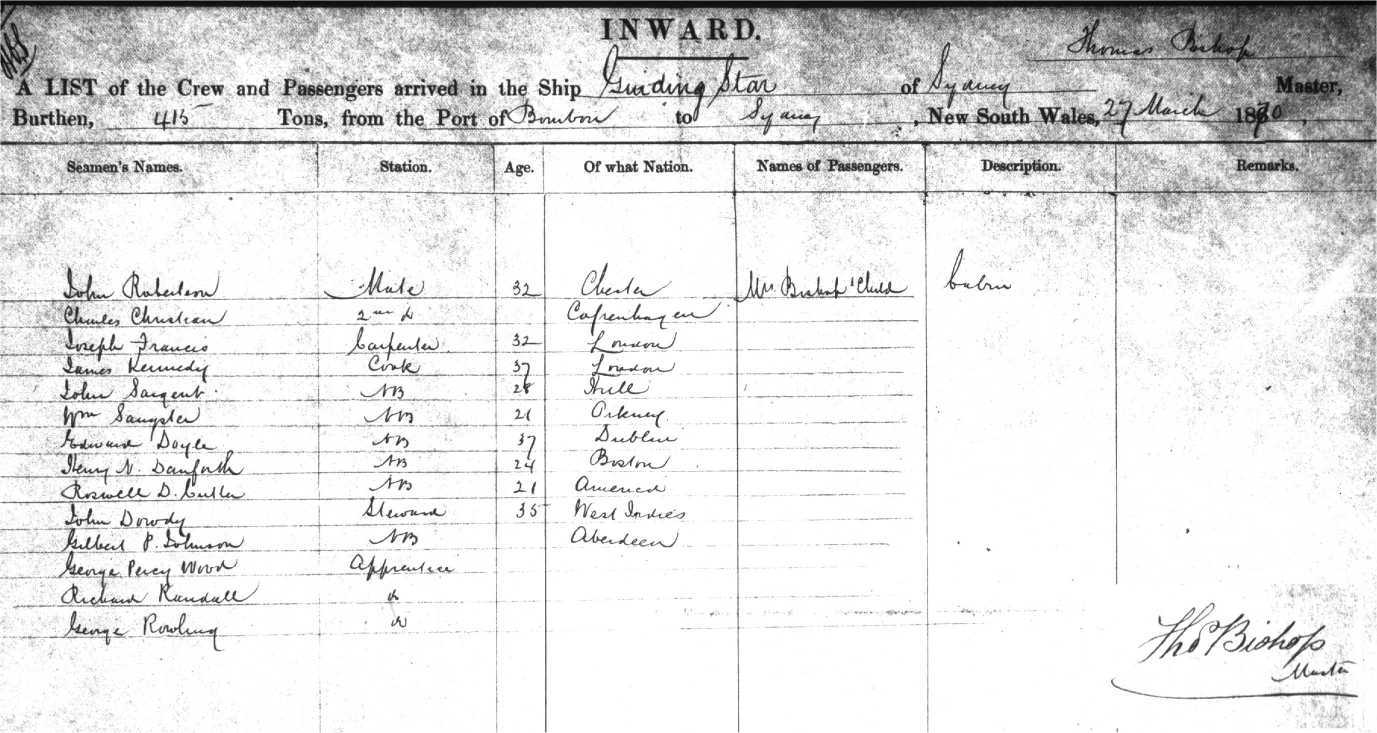 INWARD.
Thomas Bishop
A LIST of the Crew and Passengers arrived in the Ship Guiding Star of Sydney Master,
Burthen, 415 Tons, from the Port of Bourbon to Sydney, New South Wales, 27 March 1870,
Seamen's Names. Station. Age. Of what Nation. Names of Passengers. Description. Remarks.
John Robertson Mate 32 Chester Mrs Bishop & Child Cabin
Charles Christian 2nd Do Copenhagen
Joseph Francis Carpenter 32 London
James Kennedy Cook 37 London
John Sargent AB 28 Hull
Wm Sangster AB 21 Orkney
Edward Doyle AB 37 Dublin
Henry N. Danforth AB 24 Boston
Roswell D. Cutler AB 21 America
John Dowdy Steward 35 West Indies
Gilbert P. Johnson AB Aberdeen
George Percy Wood Apprentice
Richard Randall Do
George Rowling Do
Thos Bishop
Master